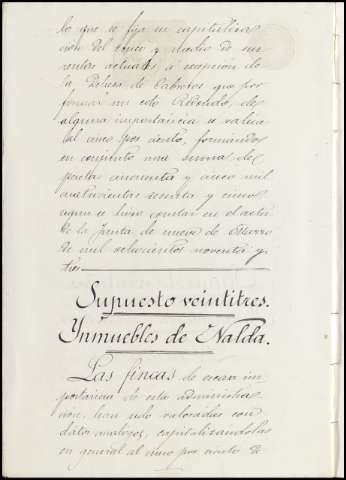 lo que se fija su capitaliza
ción del cinco y medio de sus
rentas actuales á excepción de
la Dehesa de Cabreros que por
formar un coto redondo, de
alguna importancia se valua
al cinco por ciento, formando
en conjunto una suma de
pesetas cincuenta y cinco mil
cuatrocientas sesenta y cinco
segun se hizo constar en el acta
de la Junta de nueve de Enero
de mil ochocientos noventa y
tres
Supuesto veintitres.
Ynmuebles de Nalda.
Las fincas de escasa im
portancia de esta administra
cion, han sido valoradas con
datos analogos, capitalizandolas
en general al cinco por ciento de